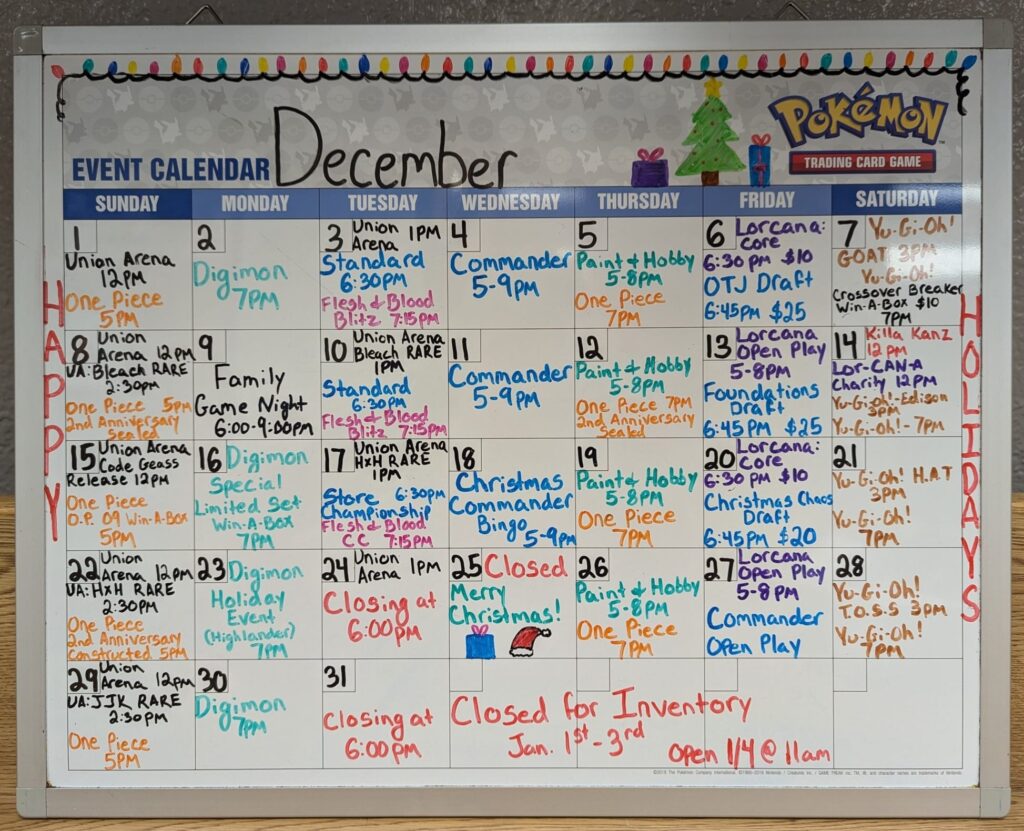 December
EVENT CALENDAR
POKéMON
TRADING CARD GAME
SUNDAY MONDAY TUESDAY WEDNESDAY THURSDAY FRIDAY SATURDAY
HAPPY
HOLIDAYS
1
Union Arena
12PM
One Piece
5PM
2
Digimon
7PM
3 Union 1PM
Arena
Standard
6:30PM
Flesh & Blood
Blitz 7:15PM
4
Commander
5-9PM
5
Paint & Hobby
5-8PM
One Piece
7PM
6 Lorcana:
core
6:30 PM $10
OTJ Draft
6:45PM $25
7 Yu-Gi-Oh!
GOAT 3PM
Yu-Gi-Oh!
Crossover Breaker
Win-A-Box $10
7PM
8 Union
Arena 12PM
UA: Bleach RARE
2:30PM
One Piece 5PM
2nd Anniversary
Sealed
9
Family
Game Night
6:00-9:00PM
10 Union Arena
Bleach RARE
1PM
Standard
6:30PM
Flesh & Blood
Blitz 7:15PM
11
Commander
5-9PM
12
Paint & Hobby
5-8PM
One Piece 7PM
2nd Anniversary
Sealed
13 Lorcana
Open Play
5-8PM
Foundations
Draft
6:45PM $25
14 Killa Kanz
12 pm
Lor-CAN-A
Charity 12PM
Yu-Gi-Oh!-Edison
3PM
Yu-Gi-Oh!-7PM
15 Union Arena
Code Geass
Release 12PM
One Piece
O.P. 09 Win-A-Box
5PM
16 Digimon
Special
Limited Set
Win-A-Box
7PM
17 Union Arena
HxH RARE
1PM
Store 6:30PM
Championship
Flesh & Blood
CC 7:15PM
18
Christmas
Commander
Bingo 5-9PM
19
Paint & Hobby
5-8PM
One Piece
7PM
20 Lorcana:
core
6:30 PM $10
Christmas Chaos
Draft
6:45PM $20
21
Yu-Gi-Oh! H.A.T
3PM
Yu-Gi-Oh!
7PM
22 Union
Arena 12PM
UA: HxH RARE
2:30PM
One Piece
2nd Anniversary
Constructed 5PM
23 Digimon
Holiday
Event
(Highlander)
7PM
24 Union
Arena 1PM
Closing at
6:00PM
25 Closed
Merry
Christmas!
26
Paint & Hobby
5-8PM
One Piece
7PM
27 Lorcana
Open Play
5-8PM
Commander
Open Play
28
Yu-Gi-Oh!
T.O.S.S 3PM
Yu-Gi-Oh!
7PM
29 Union
Arena 12PM
UA: JJK RARE
2:30PM
One Piece
5PM
30
Digimon
7PM
31
Closing at
6:00PM
Closed for Inventory
Jan. 1st-3rd
Open 1/4 @ 11am